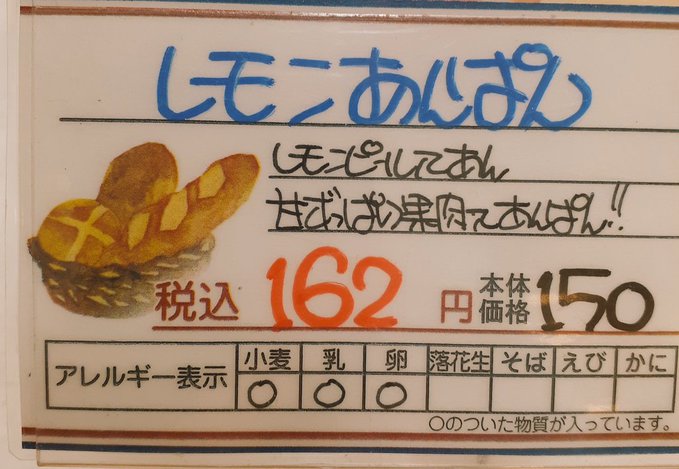 レモンあんぱん
レモンピールてあん
甘ずっぱい果肉てあんぱん!!
税込 162 円 本体価格 150
アレルギー表示 小麦 乳 卵 落花生 そば えび かに
○ ○ ○
○のついた物質が入っています。